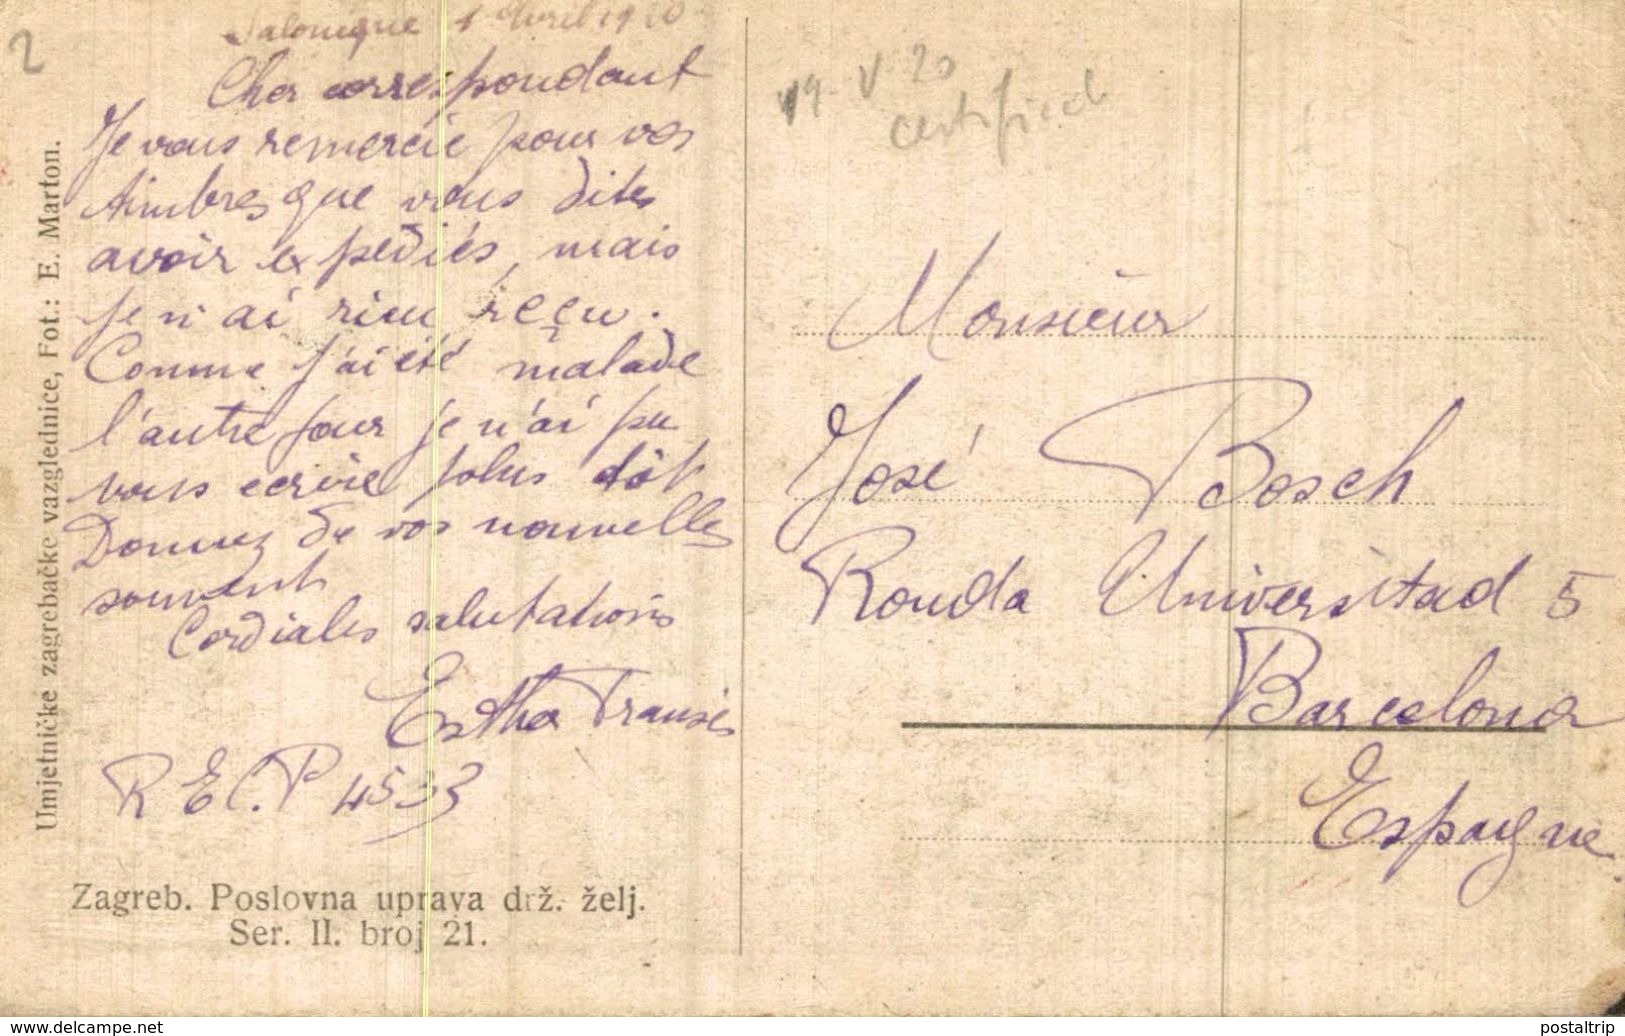 2
Salonique 1 Avril 1920
Cher correspondant
Je vous remercie pour vos
timbres que vous dites
avoir expediés, mais
je n'ai rien reçu.
Comme j'ai été malade
l'autre jour je n'ai pu
vous ecrire plus tôt
Donnez de vos nouvelles
souvent
Cordiales salutations
Esther Fransès
R E C. P 4533
Umjetničke zagrebačke vazglednice, Fot.: E. Marton.
Zagreb. Poslovna uprava drž. želj.
Ser. II. broj 21.
19 V 20
Monsieur
José Bosch
Ronda Universitad 5
Barcelona
Espagne
www.delcampe.net
postaltrip